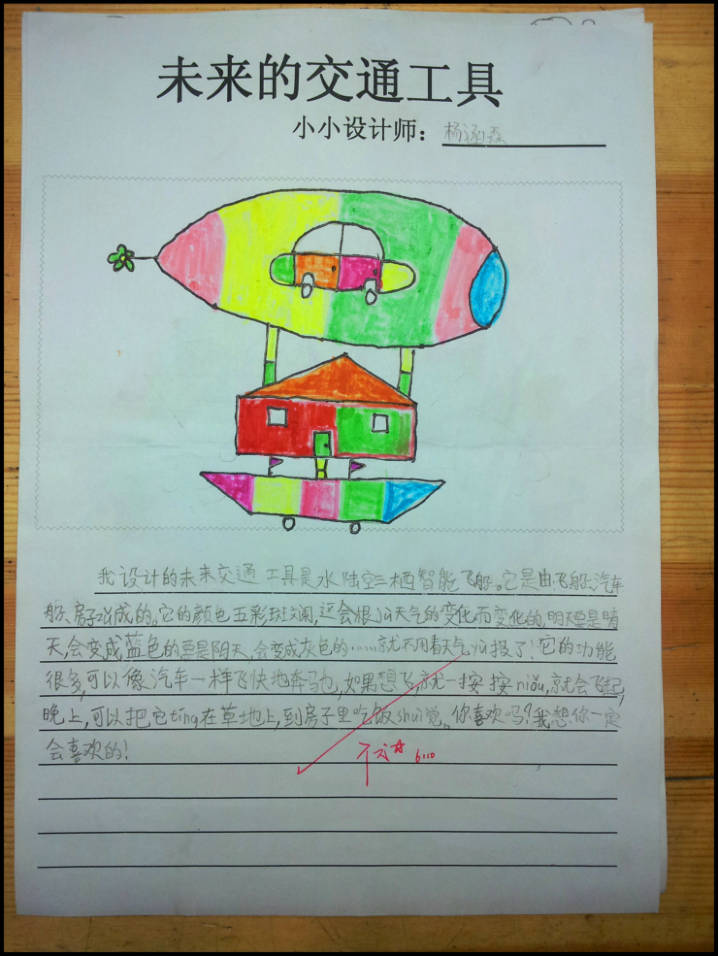 未来的交通工具
小小设计师：杨涵
我设计的未来交通工具是水陆空三栖智能飞船。它是由飞船、汽车
船、房子组成的。它的颜色五彩斑斓,还会根jù天气的变化而变化的,明天要是晴
天,会变成蓝色的要是阴天,会变成灰色的……就不用看天气yù报了！它的功能
很多,可以像汽车一样飞快地奔驰,如果想飞,就一按按niǔu,就会飞起,
晚上,可以把它tíng在草地上,到房子里吃饭shuì觉。你喜欢吗？我想你一定
会喜欢的！